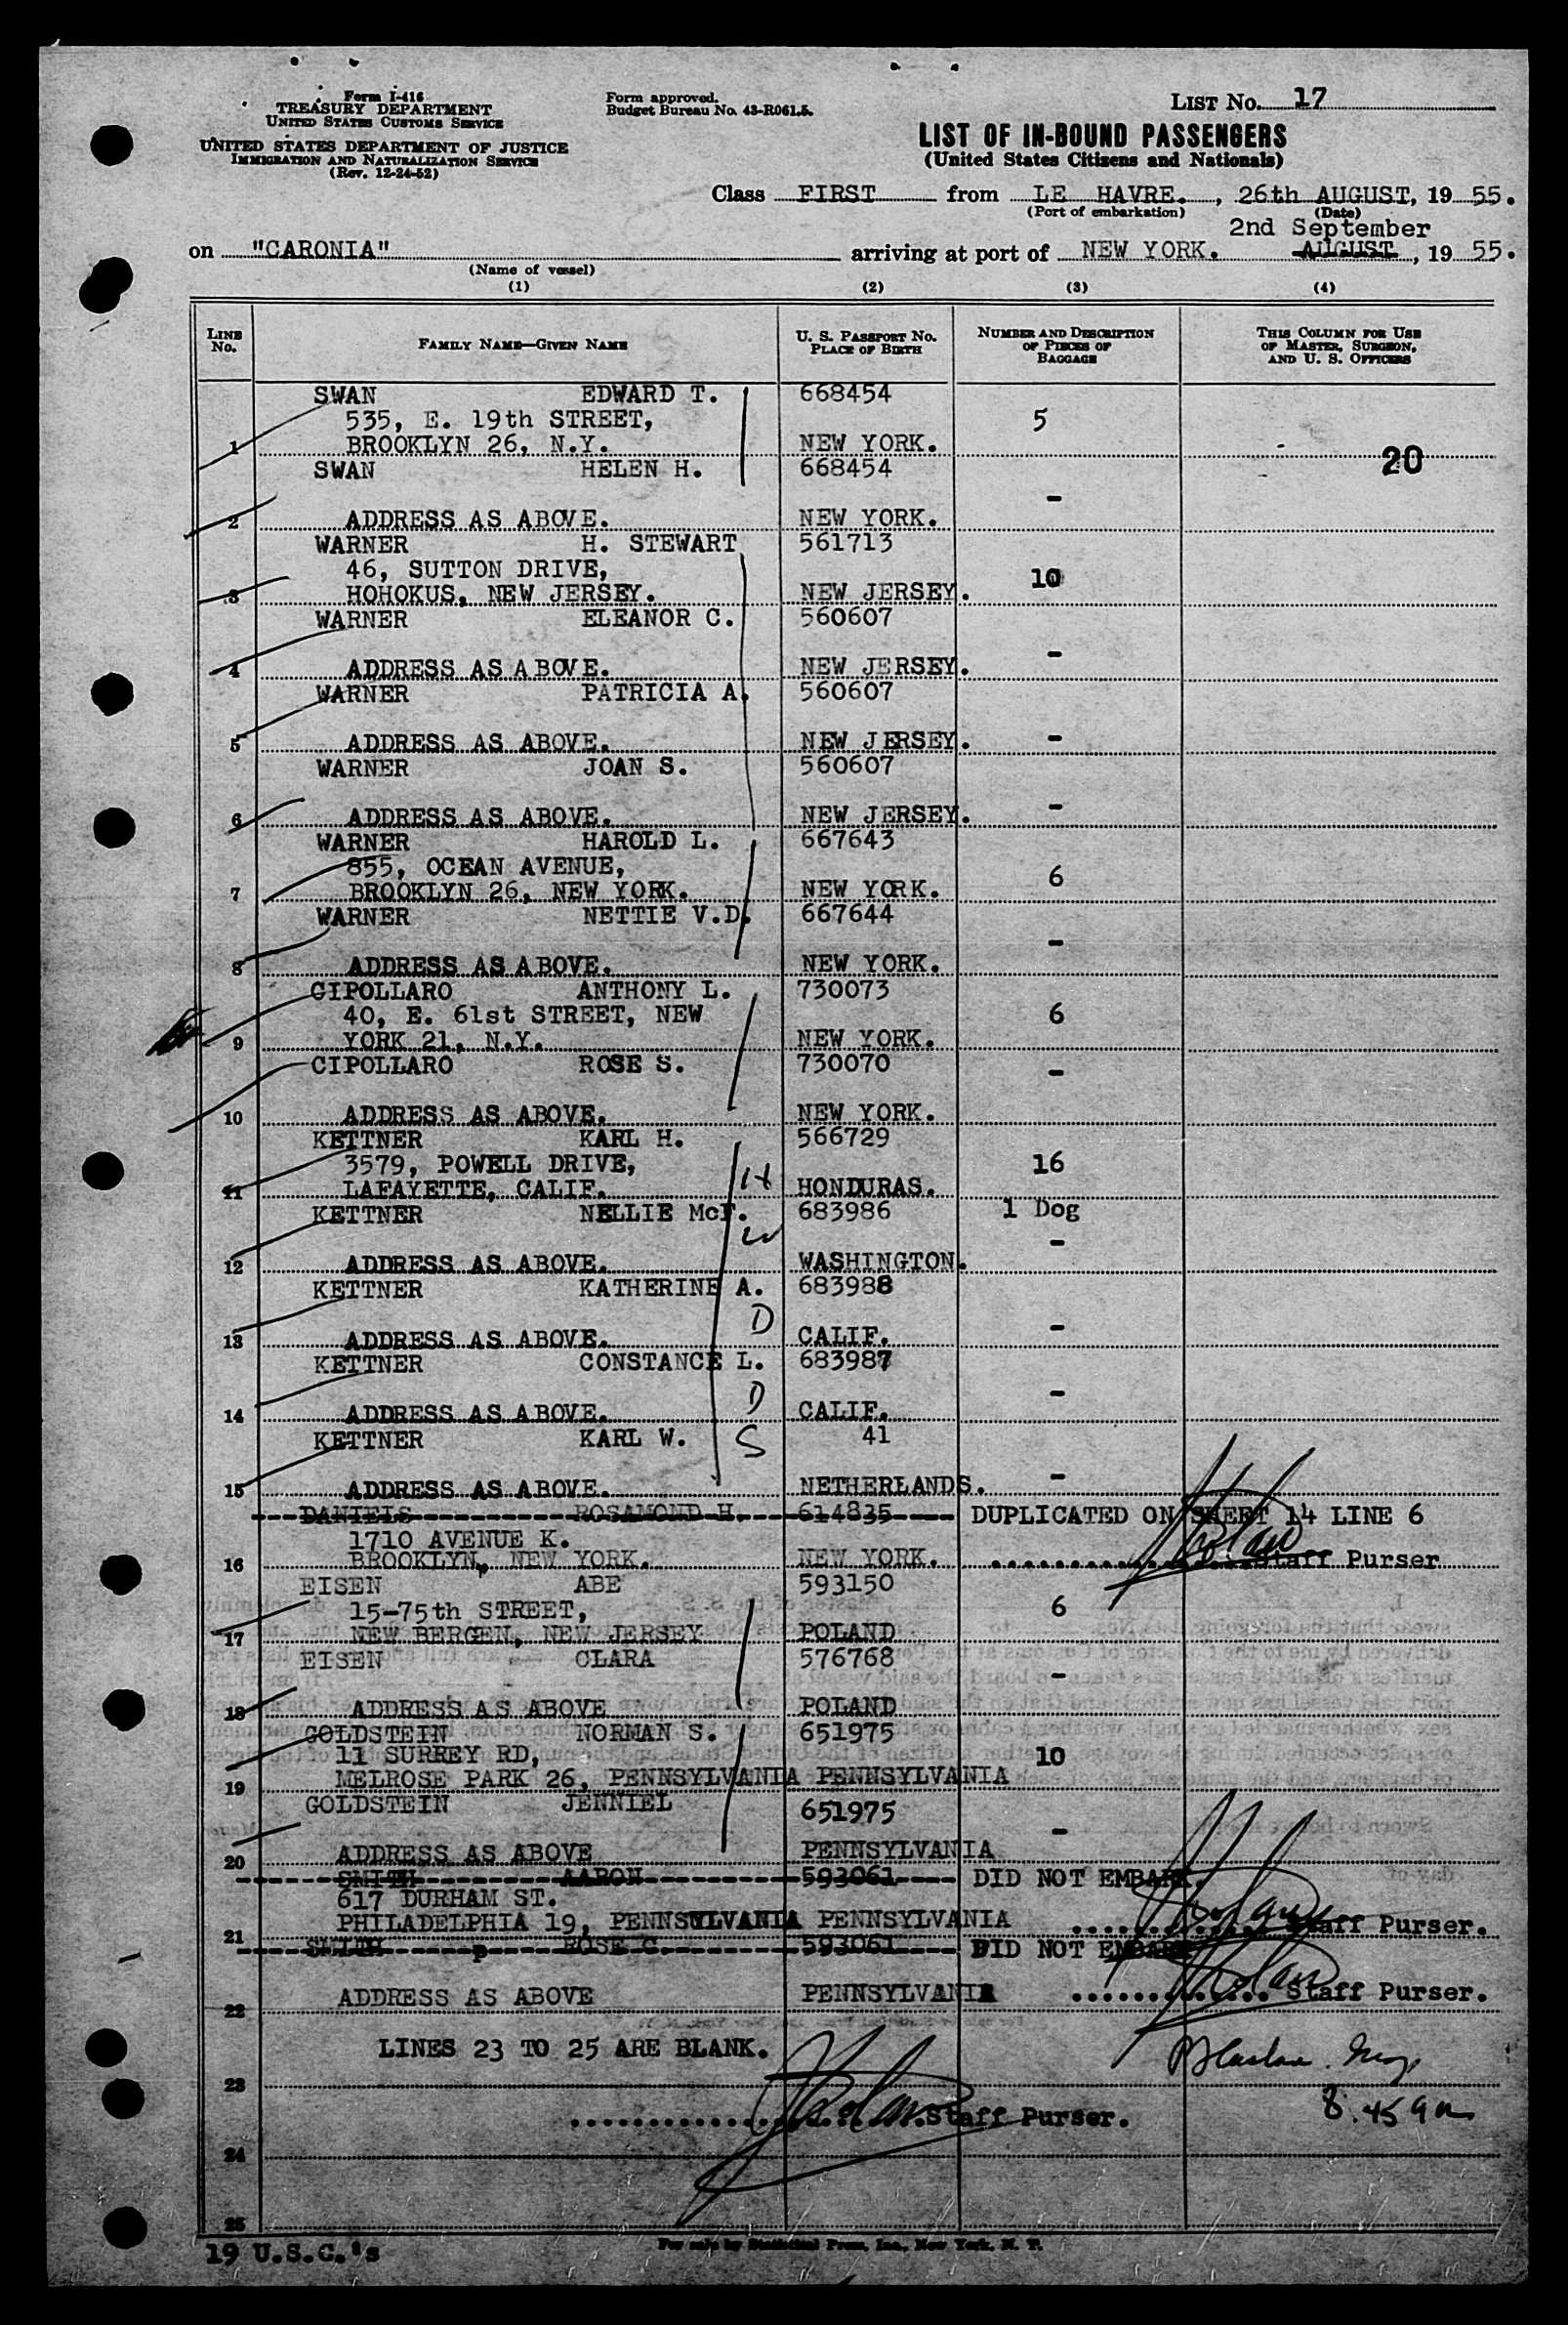 Form I-416
TREASURY DEPARTMENT
UNITED STATES CUSTOMS SERVICE
UNITED STATES DEPARTMENT OF JUSTICE
IMMIGRATION AND NATURALIZATION SERVICE
(Rev. 12-24-52)
Form approved.
Budget Bureau No. 43-R061.5.
LIST NO. 17
LIST OF IN-BOUND PASSENGERS
(United States Citizens and Nationals)
Class FIRST from LE HAVRE. , 26th AUGUST, 19 55.
(Port of embarkation) (Date)
2nd September
on "CARONIA" arriving at port of NEW YORK. AUGUST , 19 55.
(Name of vessel)
(1) (2) (3) (4)
LINE NO. FAMILY NAME—GIVEN NAME U. S. PASSPORT NO. PLACE OF BIRTH NUMBER AND DESCRIPTION OF PIECES OF BAGGAGE THIS COLUMN FOR USE OF MASTER, SURGEON, AND U. S. OFFICERS
SWAN EDWARD T. 668454
535, E. 19th STREET, 5
1 BROOKLYN 26, N.Y. NEW YORK. 20
SWAN HELEN H. 668454
-
2 ADDRESS AS ABOVE. NEW YORK.
WARNER H. STEWART 561713
46, SUTTON DRIVE, 10
3 HOHOKUS, NEW JERSEY. NEW JERSEY.
WARNER ELEANOR C. 560607
-
4 ADDRESS AS ABOVE. NEW JERSEY.
WARNER PATRICIA A. 560607
5 ADDRESS AS ABOVE. NEW JERSEY. -
WARNER JOAN S. 560607
6 ADDRESS AS ABOVE. NEW JERSEY. -
WARNER HAROLD L. 667643
855, OCEAN AVENUE, 6
7 BROOKLYN 26, NEW YORK. NEW YORK.
WARNER NETTIE V.D. 667644
-
8 ADDRESS AS ABOVE. NEW YORK.
CIPOLLARO ANTHONY L. 730073
40, E. 61st STREET, NEW 6
9 YORK 21, N.Y. NEW YORK.
CIPOLLARO ROSE S. 730070
-
10 ADDRESS AS ABOVE. NEW YORK.
KETTNER KARL H. 566729
3579, POWELL DRIVE, 16
11 LAFAYETTE, CALIF. H HONDURAS.
KETTNER NELLIE McF. 683986 1 Dog
W -
12 ADDRESS AS ABOVE. WASHINGTON.
KETTNER KATHERINE A. 683988
D
13 ADDRESS AS ABOVE. CALIF. -
KETTNER CONSTANCE L. 683987
D -
14 ADDRESS AS ABOVE. CALIF.
KETTNER KARL W. S 41
15 ADDRESS AS ABOVE. NETHERLANDS. -
DANIELS ROSAMOND H. 614835 DUPLICATED ON SHEET 14 LINE 6
1710 AVENUE K.
16 BROOKLYN, NEW YORK. NEW YORK. Staff Purser
EISEN ABE 593150
15-75th STREET, 6
17 NEW BERGEN, NEW JERSEY POLAND
EISEN CLARA 576768
-
18 ADDRESS AS ABOVE POLAND
GOLDSTEIN NORMAN S. 651975
11 SURREY RD, 10
19 MELROSE PARK 26, PENNSYLVANIA PENNSYLVANIA
GOLDSTEIN JENNIEL 651975
-
20 ADDRESS AS ABOVE PENNSYLVANIA
SMITH AARON 593061 DID NOT EMBARK.
617 DURHAM ST.
21 PHILADELPHIA 19, PENNSYLVANIA PENNSYLVANIA Staff Purser.
SMITH ROSE C. 593061 DID NOT EMBARK
22 ADDRESS AS ABOVE PENNSYLVANIA Staff Purser.
LINES 23 TO 25 ARE BLANK.
23
Staff Purser. 8.45 am
24
25
19 U.S.C.'s
For sale by Statistical Press, Inc., New York, N. Y.